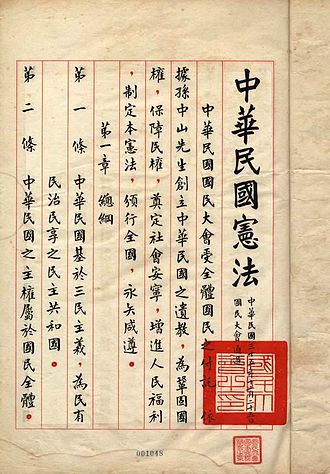 中華民國憲法
中華民國三十五年十二月二十五日
國民大會通過
中華民國國民大會受全體國民之付託,依
據孫中山先生創立中華民國之遺教,為鞏固國
權,保障民權,奠定社會安寧,增進人民福利
,制定本憲法,頒行全國,永矢咸遵。
第一章 總綱
第一條 中華民國基於三民主義,為民有
民治民享之民主共和國。
第二條 中華民國之主權屬於國民全體。
國民大會之印
001048